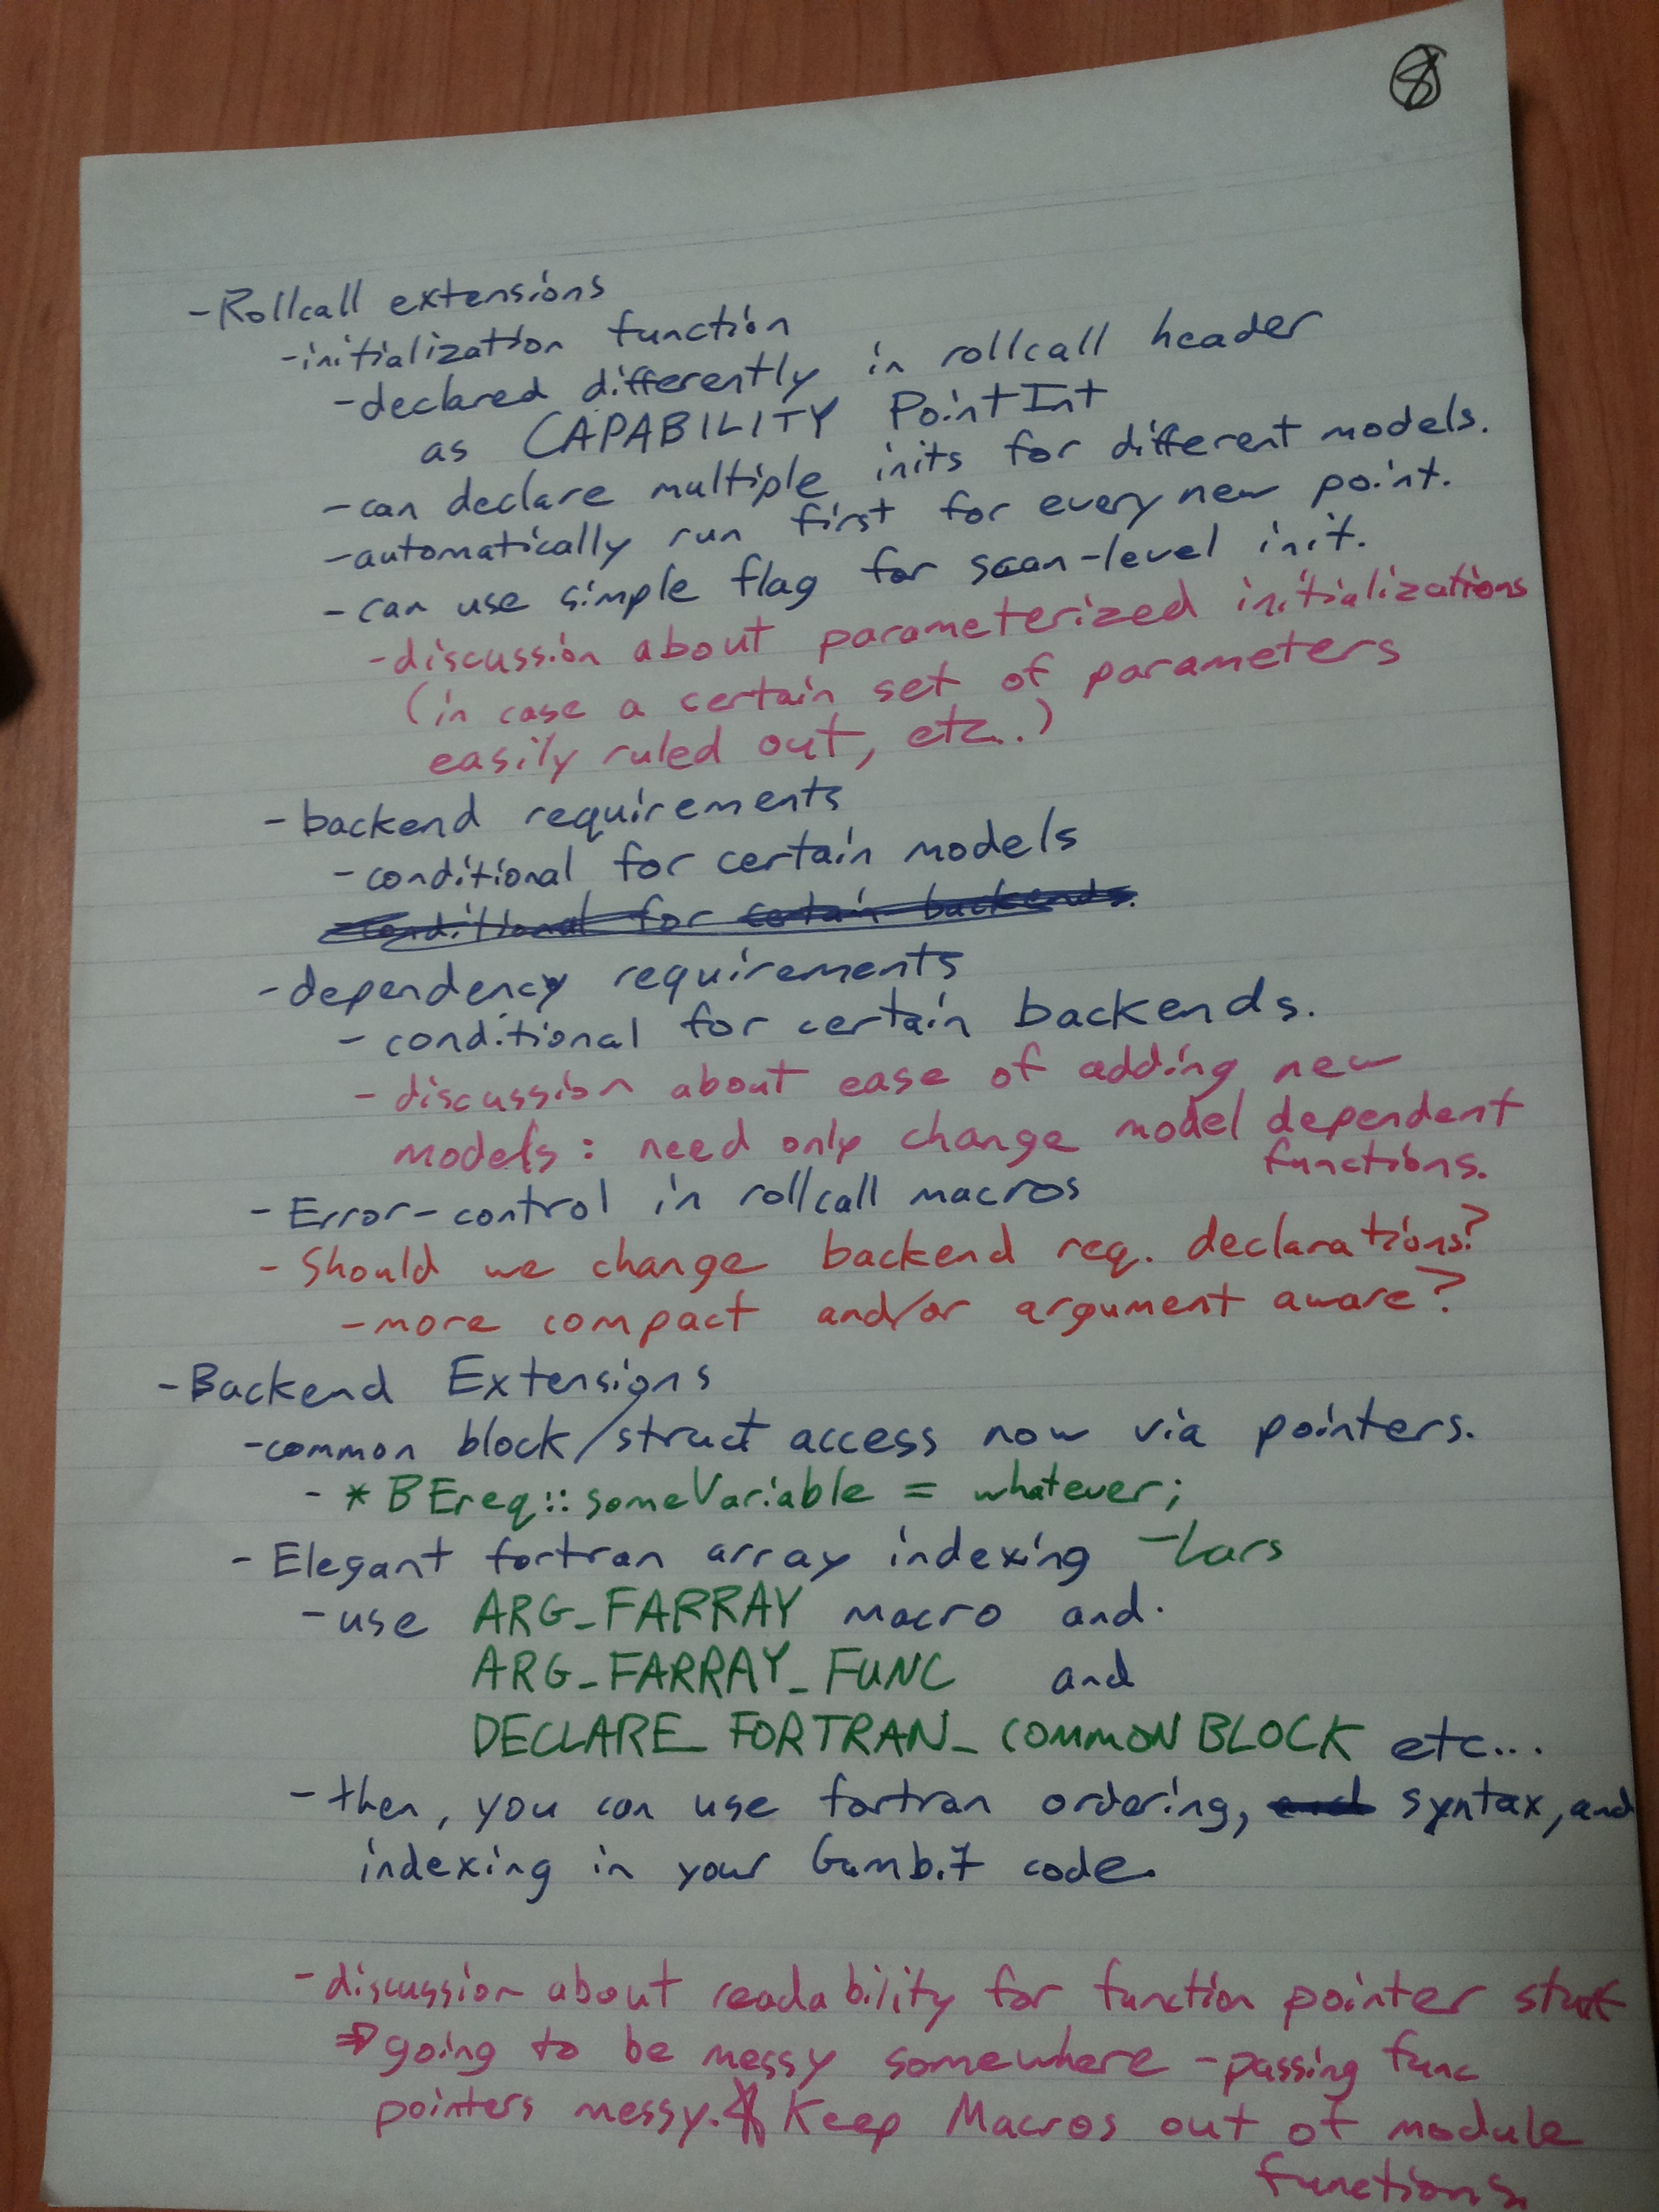 8
-Rollcall extensions
-initialization function
-declared differently in rollcall header
as CAPABILITY PointInt
-can declare multiple inits for different models.
-automatically run first for every new point.
-can use simple flag for scan-level init.
-discussion about parameterized initializations
(in case a certain set of parameters
easily ruled out, etc..)
-backend requirements
-conditional for certain models
conditional for certain backends.
-dependency requirements
-conditional for certain backends.
-discussion about ease of adding new
models: need only change model dependent
functions.
-Error-control in rollcall macros
-Should we change backend req. declarations?
-more compact and/or argument aware?
-Backend Extensions
-common block/struct access now via pointers.
-*BEreq::someVariable = whatever;
-Elegant fortran array indexing -Lars
-use ARG_FARRAY macro and
ARG_FARRAY_FUNC and
DECLARE_FORTRAN_COMMONBLOCK etc...
-then, you can use fortran ordering, and syntax, and
indexing in your Gambit code.
-discussion about readability for function pointer stuff
⇒going to be messy somewhere -passing func
pointers messy. * Keep Macros out of module
functions